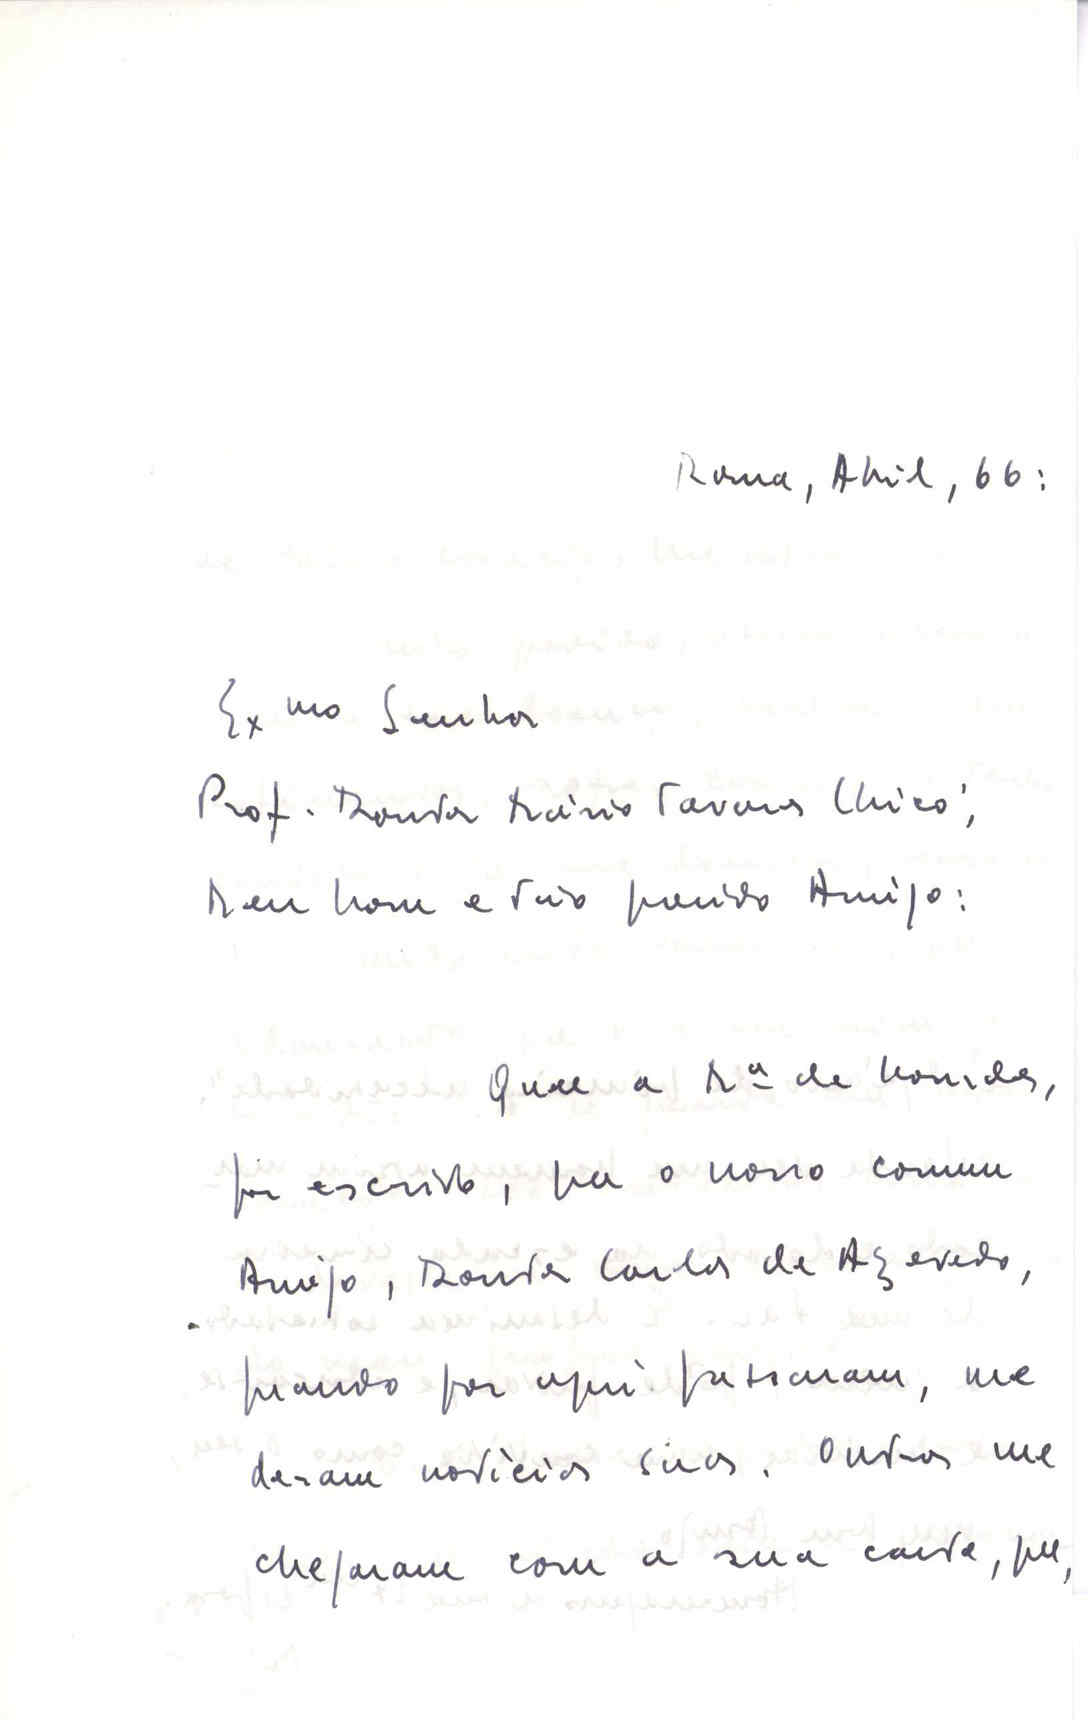 Roma, Abril, 66:
Exmo Senhor
Prof. Doutor Mário Tavares Chicó,
Meu bom e tão querido Amigo:
Quer a Mª de Lourdes,
por escrito, quer o nosso comum
Amigo, Doutor Carlos de Azevedo,
quando por aqui passaram, me
deram notícias suas. Outras me
chegaram com a sua carta, que,